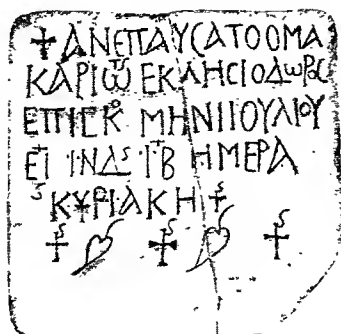 ✝ΑΝΕΠΑΥCΑΤΟΟΜΑ
ΚΑΡΙωτ ΕΚΛΗCΙΟΔωΡΟC
ΕΠΙCΚο ΜΗΝΙΙΟΥΛΙΟΥ
ΕΙ ΙΝΔS ΙΒ ΗΜΕΡΑ
ΚΥΡΙΑΚΗ